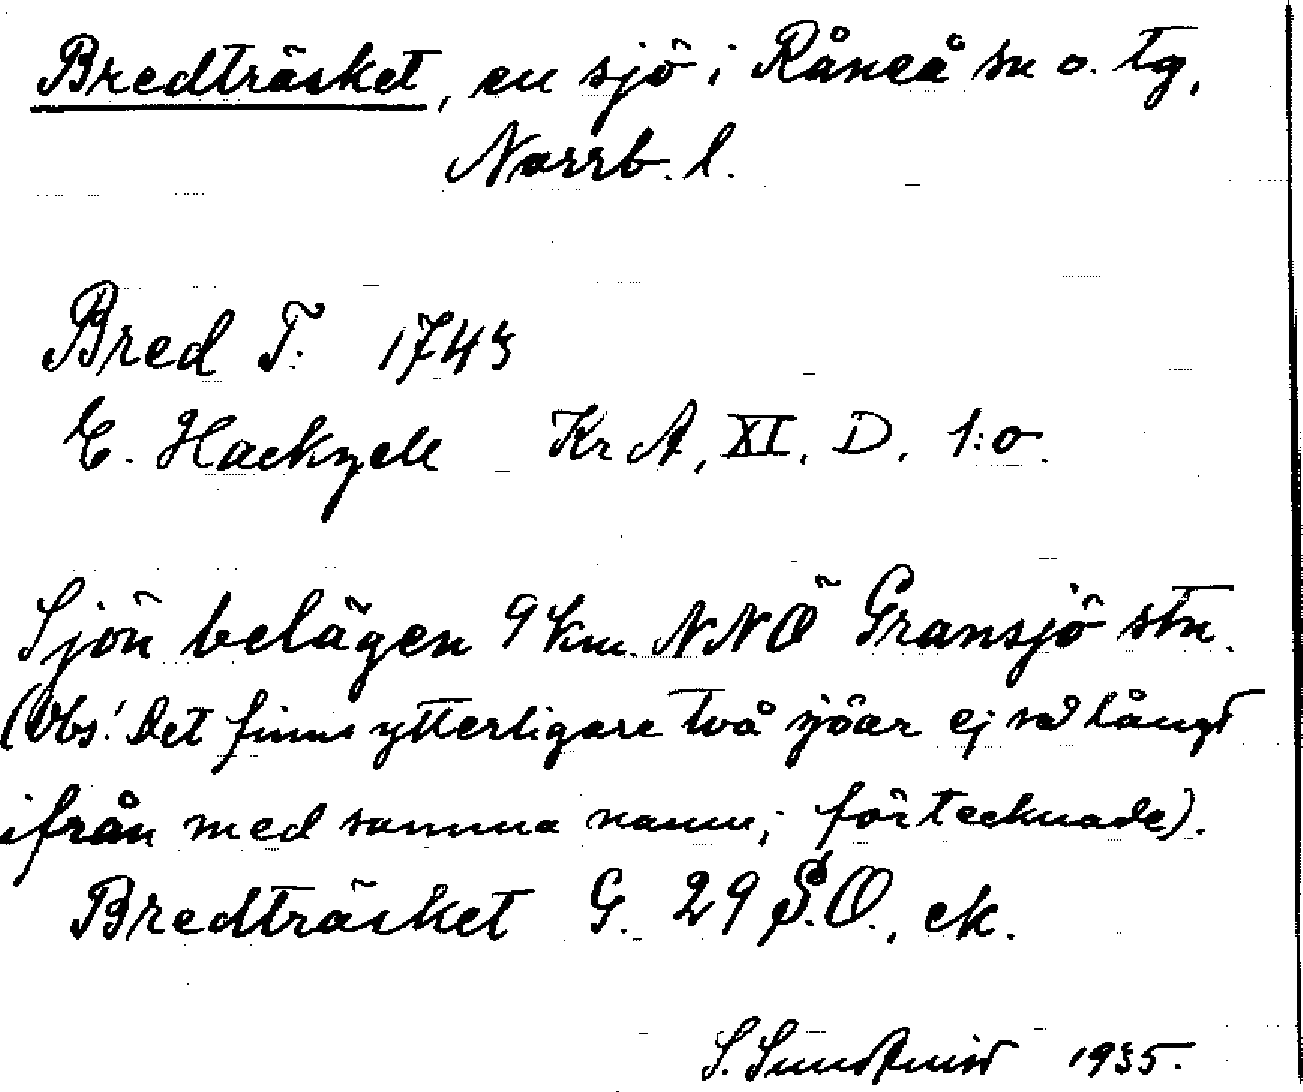 Bredträsket, en sjö i Råneå sn o. tg,
Norrb. l.
Bred T: 1743
E. Hackzell Kr A, XI, D, 1:o.
Sjön belägen 9 km. NNÖ Gransjö stn.
(Obs! Det finns ytterligare två sjöar ej så långt
ifrån med samma namn; förtecknade).
Bredträsket G. 29 S.O., ek.
S. Sundkvist 1935.